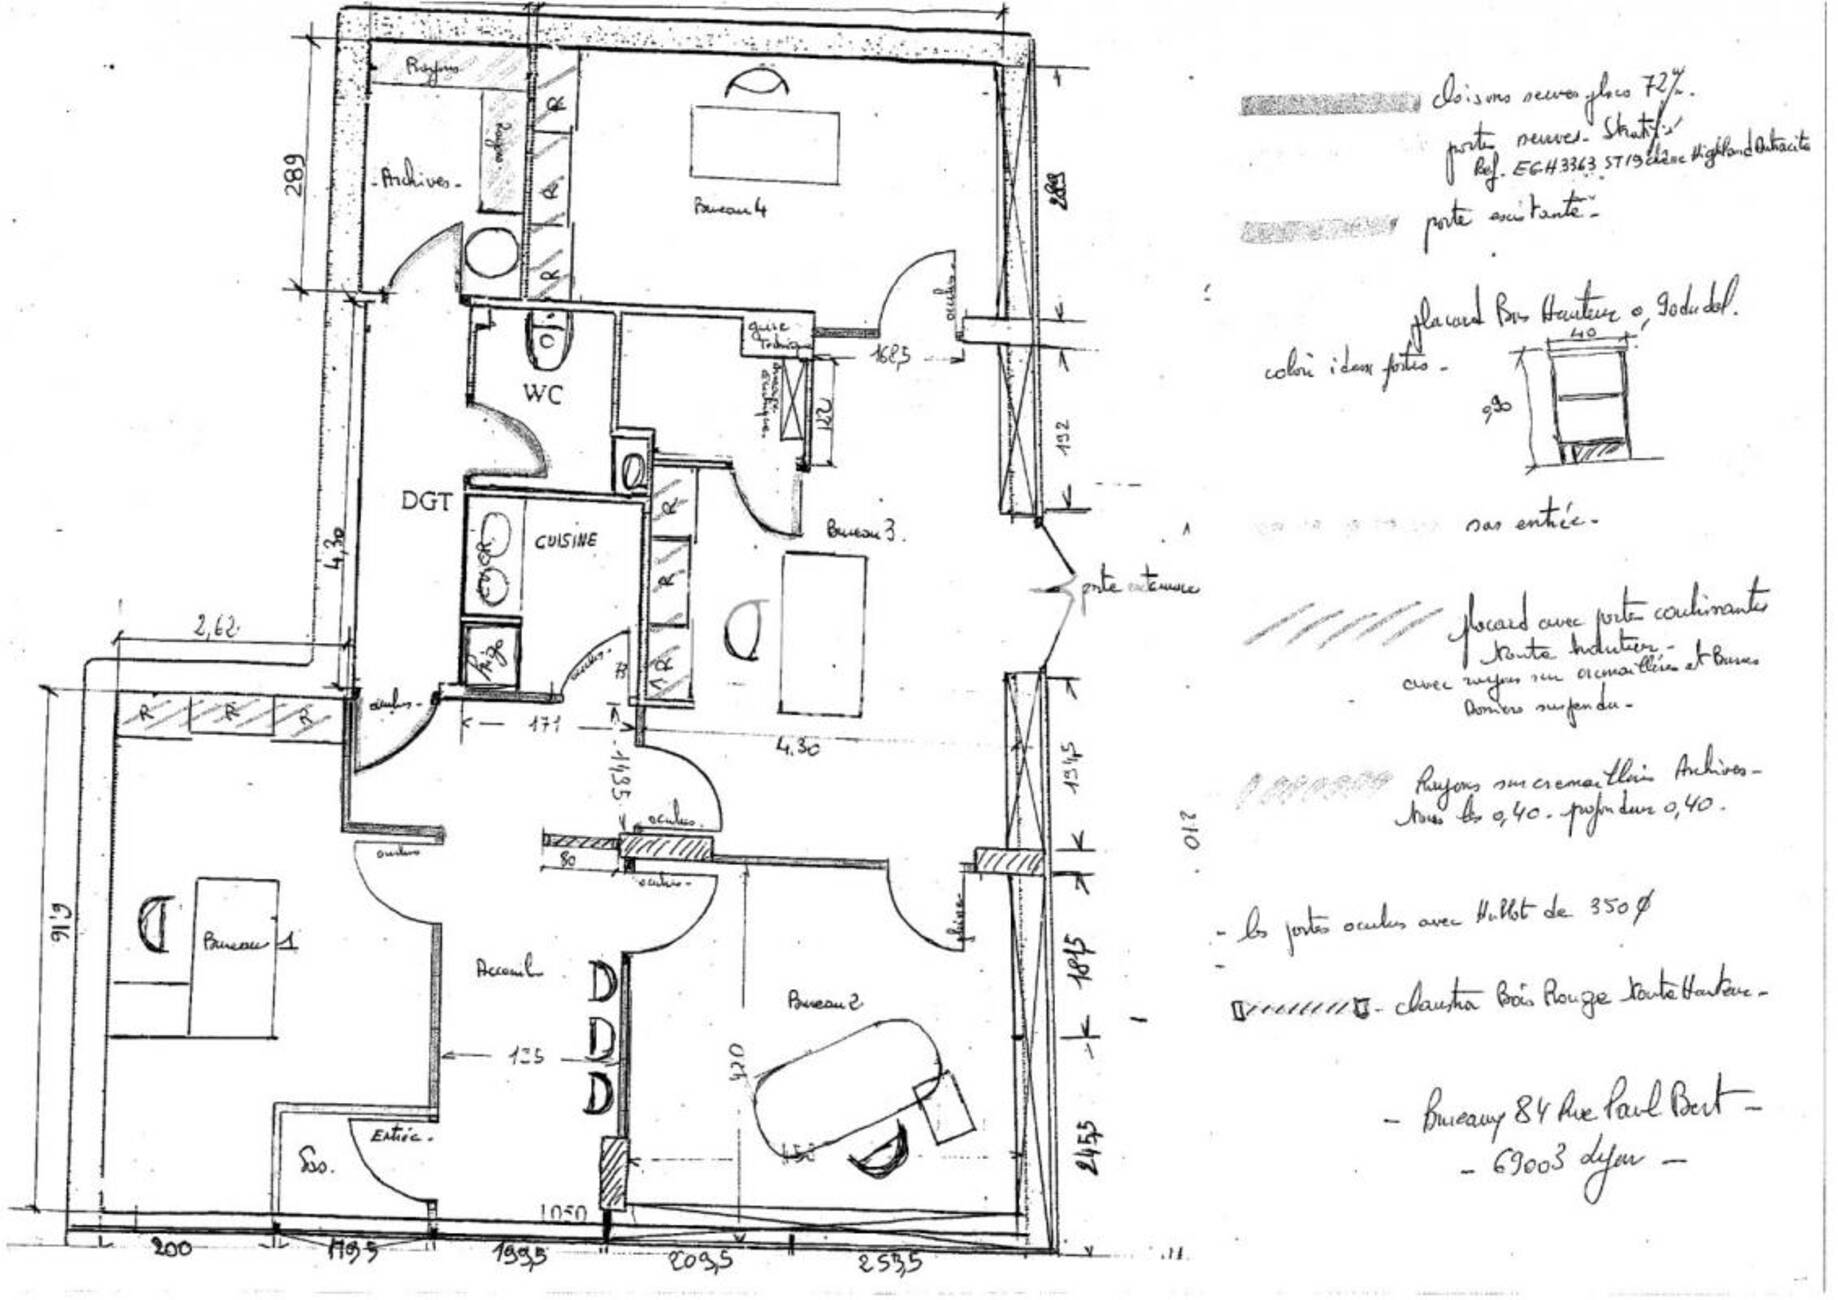 Rayons
cloisons neuves placo 72%.
portes neuves. Stratifié
Ref. EGH3363 ST19 chêne Highland Antracite
289
Rayons
R
- Archives -
R
Bureau 4
289
porte existante -
R
oculus.
placard Bas Hauteur 0,90 du sol.
gaine
Technique
168,5
40
colori idem portes -
WC
122
0,90
192
R
DGT
CUISINE
Bureau 3.
sas entrée -
4,30
R
porte exterieure
placard avec porte coulissantes
toute hauteur -
avec rayons sur cremaillères et Barres
Dossiers suspendu -
2,62
Frigo
oculus -
75
R
R
R
R
oculus -
171
4.30
148,5
194,5
Rayons sur cremaillère Archives -
tous les 0,40 - profondeur 0,40.
oculus.
210
oculus
80
oculus -
616
pleine
- les portes oculus avec Hublot de 350 Ø
Bureau 1
Acceuil
187,5
Bureau 2
- claustra Bois Rouge toute Hauteur -
135
420
Entrée -
Sas.
245,5
- Bureaux 84 Rue Paul Bert -
- 69003 Lyon -
1050
200
179,5
199,5
209,5
253,5